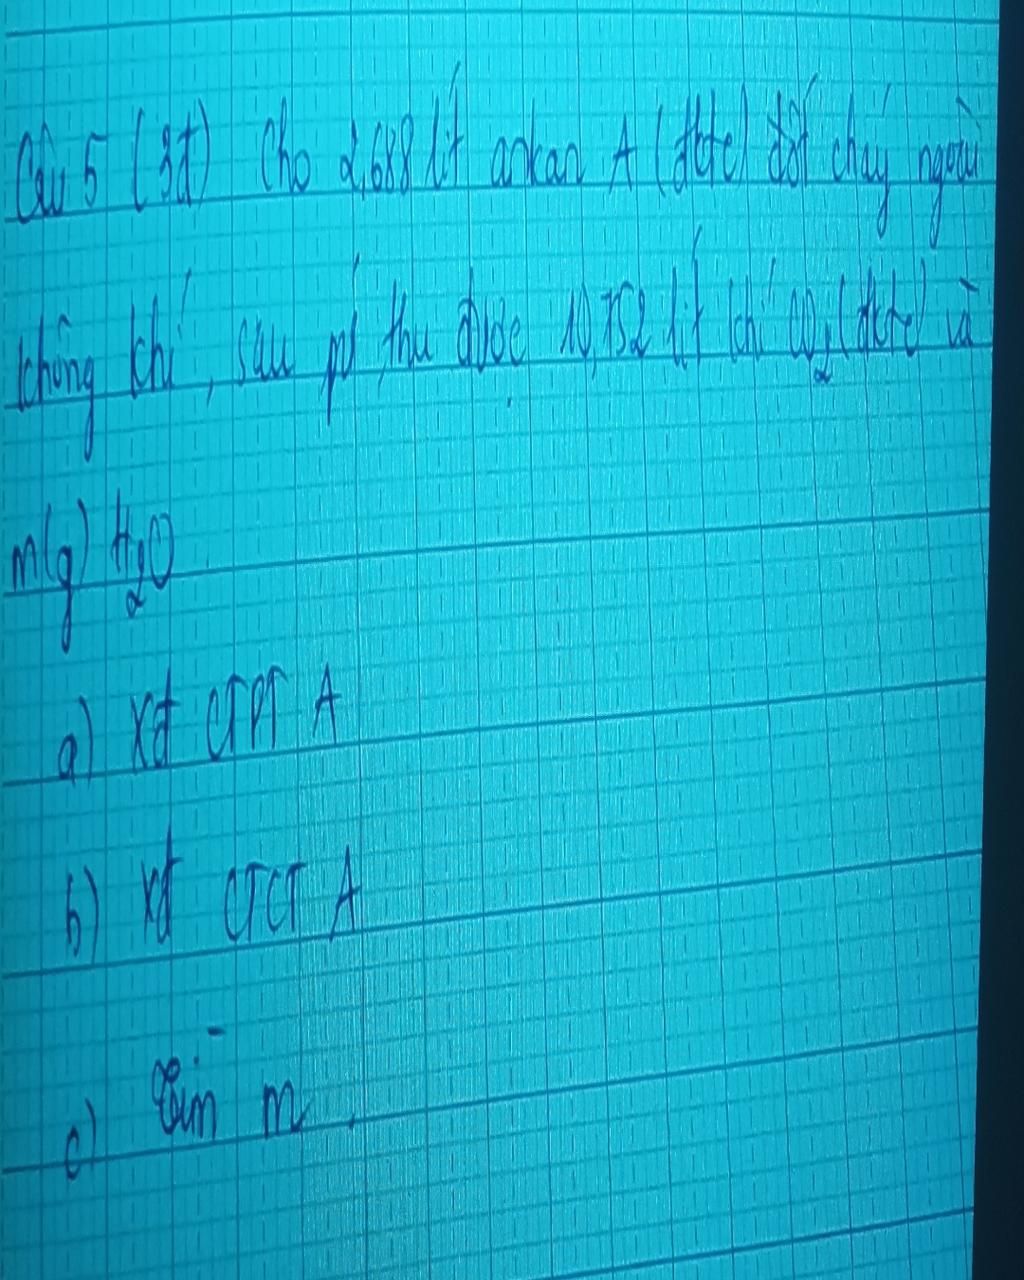 Câu 5 (3đ) Cho 2,688 lít ankan A (đktc) đốt cháy ngoài
không khí, sau pứ, thu được 10,752 lít khí CO2 (đktc) và
m(g) H2O
a) Xđ CTPT A
b) Xđ CTCT A
c) Tìm m.